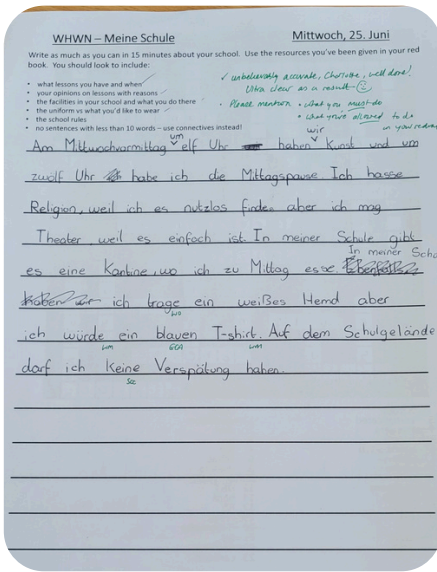 WHWN – Meine Schule Mittwoch, 25. Juni
Write as much as you can in 15 minutes about your school. Use the resources you've been given in your red
book. You should look to include:
• what lessons you have and when
• your opinions on lessons with reasons
• the facilities in your school and what you do there
• the uniform vs what you'd like to wear
• the school rules
• no sentences with less than 10 words – use connectives instead!
✓ unbelievably accurate, Charlotte, well done!
Ultra clear as a result
• Please mention • what you must do
• what you're allowed to do
in your redraft
um wir
Am Mittwochvormittag elf Uhr haben Kunst und um
zwölf Uhr habe ich die Mittagspause. Ich hasse
Religion, weil ich es nutzlos finde. aber ich mag
Theater, weil es einfach ist. In meiner Schule gibt
In meiner Scho
es eine Kantine, wo ich zu Mittag esse.
ich trage ein weißes Hemd aber
WO
ich würde ein blauen T-shirt. Auf dem Schulgelände
darf ich keine Verspätung haben.